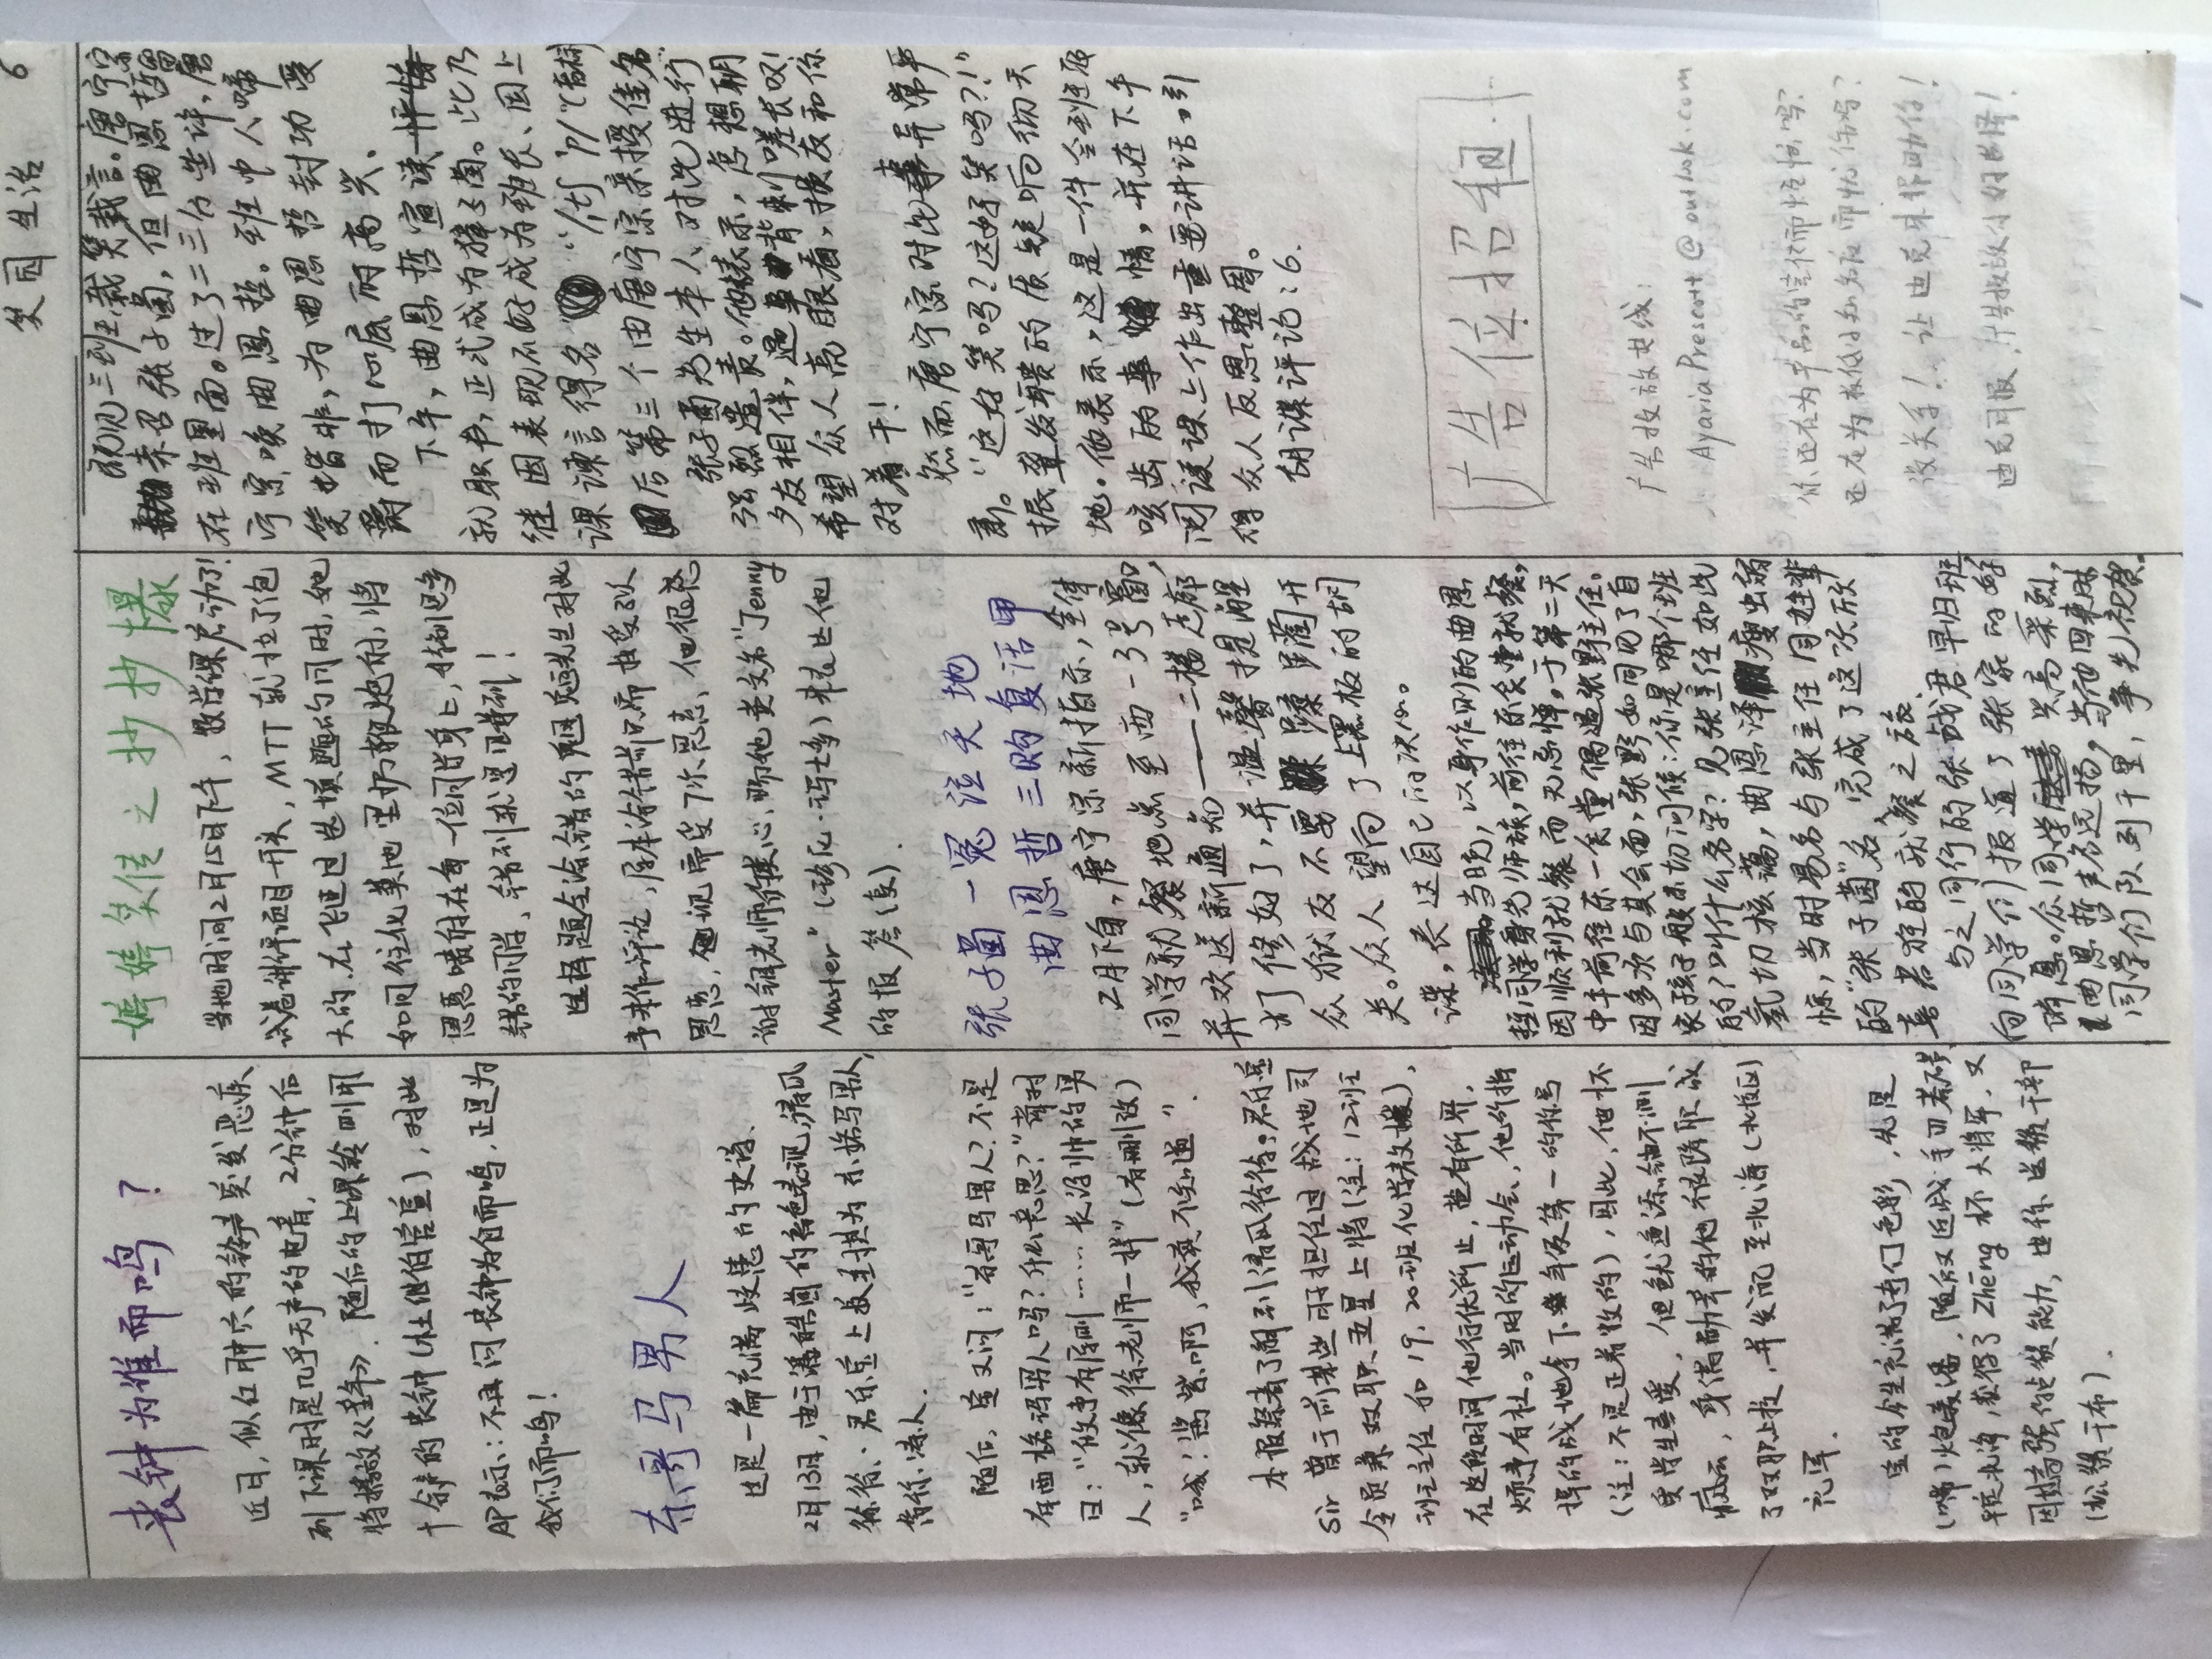 笑园生活 6
丧钟为谁而鸣？
近日，似红肿穴的铃声突发恶疾
到下课时是几乎无声的电音，2分钟后
将播放《童年》．随后的上课铃则用
十余声的丧钟（杜继伯官宣），对此
AP表示：不再问丧钟为自而鸣，正是为
我们而鸣！
东哥马男人
这是一篇充满歧患的史诗．
2月13日，由于潘皓茵的出色表现，清风
徐徐·君乐宝上校封其为东格马男人，
简称：涛人．
随后，宝又问：“有哥马男人？不是
有西格玛男人吗？什么意思？”常对
曰：“做事有原则……长得帅的男
人，就像徐老师一样”（有删改）
“哦！酱紫啊，我真不知道”．
本报探者了解到清风徐徐·君乐宝
Sir曾于前某些时担任过战地司
令员兼双职五星上将（注：12班
班主任和19、20班化学教授），
在这段时间他行优所止，楚有所界，
烦事有社。当时的运动会，他的指
挥的战地拿下年级第一的称号
（注：不是正着数的），因此，他怀
受学生喜爱，但
疯云，身偶的他被降职成
了双职上校，并发配至北海（北校区）
充军．
宝的今生充满了奇幻色彩，先是
（嘴）炮轰潘，随后又近战手刃
平定北海，获得了Zhēng杯大将军，又
因其高强的能力，也称送粪干部
（松粪干布）．
婷婷笑传之抄抄爆
当地时间2月15日下午，数学课启动了！
试卷讲评项目一开头，MTT就拉了泡
大的．在飞速过选填题的同时，她
如同往化粪池里扔鞭炮的，将
思惠喷射在每一位同学身上，特别是多
错的同学，错到就是赚到！
选择题全涂错的魑魅先生对此
事来作评论，原本涂错前只需接受3次
思惠，他现需受7次思惠，他很感
谢钼老师的关心，赐她英文名“Jenny
Master”（珍尼·玛士多）来表达他
的报答（复）．
张子菌一冤泣天地
曲恩哲三购复活甲
2月下旬，唐宁宗新指示，全体
同学就餐地点至西一3号窗，
并欢送新通知——二楼走廊
灯修好了，并温馨提醒
众狱友不要蹂躏开
关。众人望向了上黑板的胡
谍，表达自己的决心。
当晚，以身作则的曲恩
哲同学身先师族，前往东食堂就餐，
因顺利就餐而无忌惮，于第二天
中午前往东一食堂偶遇张野主任。
因多次与其会面，张野如同见了自
家孩子般亲切问候：你是哪个班
的？叫什么名字？见张主任如此
氢切核蔼，曲恩泽瘦虫弱
惊，当时易名与张主任同姓辈
的“张子菌”名，完成了这次欣
喜若狂的就餐之旅．
与之同行的张战君早归班
向同学们报道了张家的好
消息。众同学兴高采烈，
曲恩哲声名远扬，当他回来时
同学们队列千里，争先祝贺。
预见三班载笑载言。唐宁宗
亲召张子菌，但曲恩哲留
在班里面。过了二三分些许，唐
宁宗唤曲恩哲。班中人啼
笑皆非，为曲恩哲封功受
爵而打心底的高兴。
下午，曲恩哲宣读
就职书，正式成为獐子菌。此乃
继因表现不好成为班长、因上
课谏言得名“/,tʃ'p/”（音标）
后第三个由唐宁宗亲授佳名
张子菌先生本人对此进行
强烈遣责。他表示，怎想朝
夕友相伴，遇事背刺嗟长叹！
希望众人亮眼看，损友和你
对着干！
然而，唐宁宗对此事异常严
肃。“这好笑吗？这好笑吗？！”
振聋发聩的质疑响彻天
地。他表示，这是一件令班级
咳齿的事情，并在下午
阅读课上作出重要讲话。引
得众人反思整周。
胡谍评论：6．
广告位招租……
广告投放热线：
AyariaPrescott@outlook.com
你还在为产品的定位而烦恼吗？
还在为极低的知名度而忧伤吗？
没关系！让迪克来帮助你！
迪克月报，广告投放的好选择！